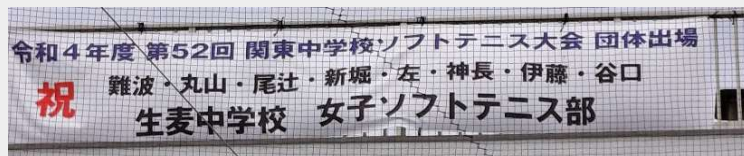 令和4年度 第52回 関東中学校ソフトテニス大会 団体出場
祝
難波・丸山・尾辻・新堀・左・神長・伊藤・谷口
生麦中学校 女子ソフトテニス部